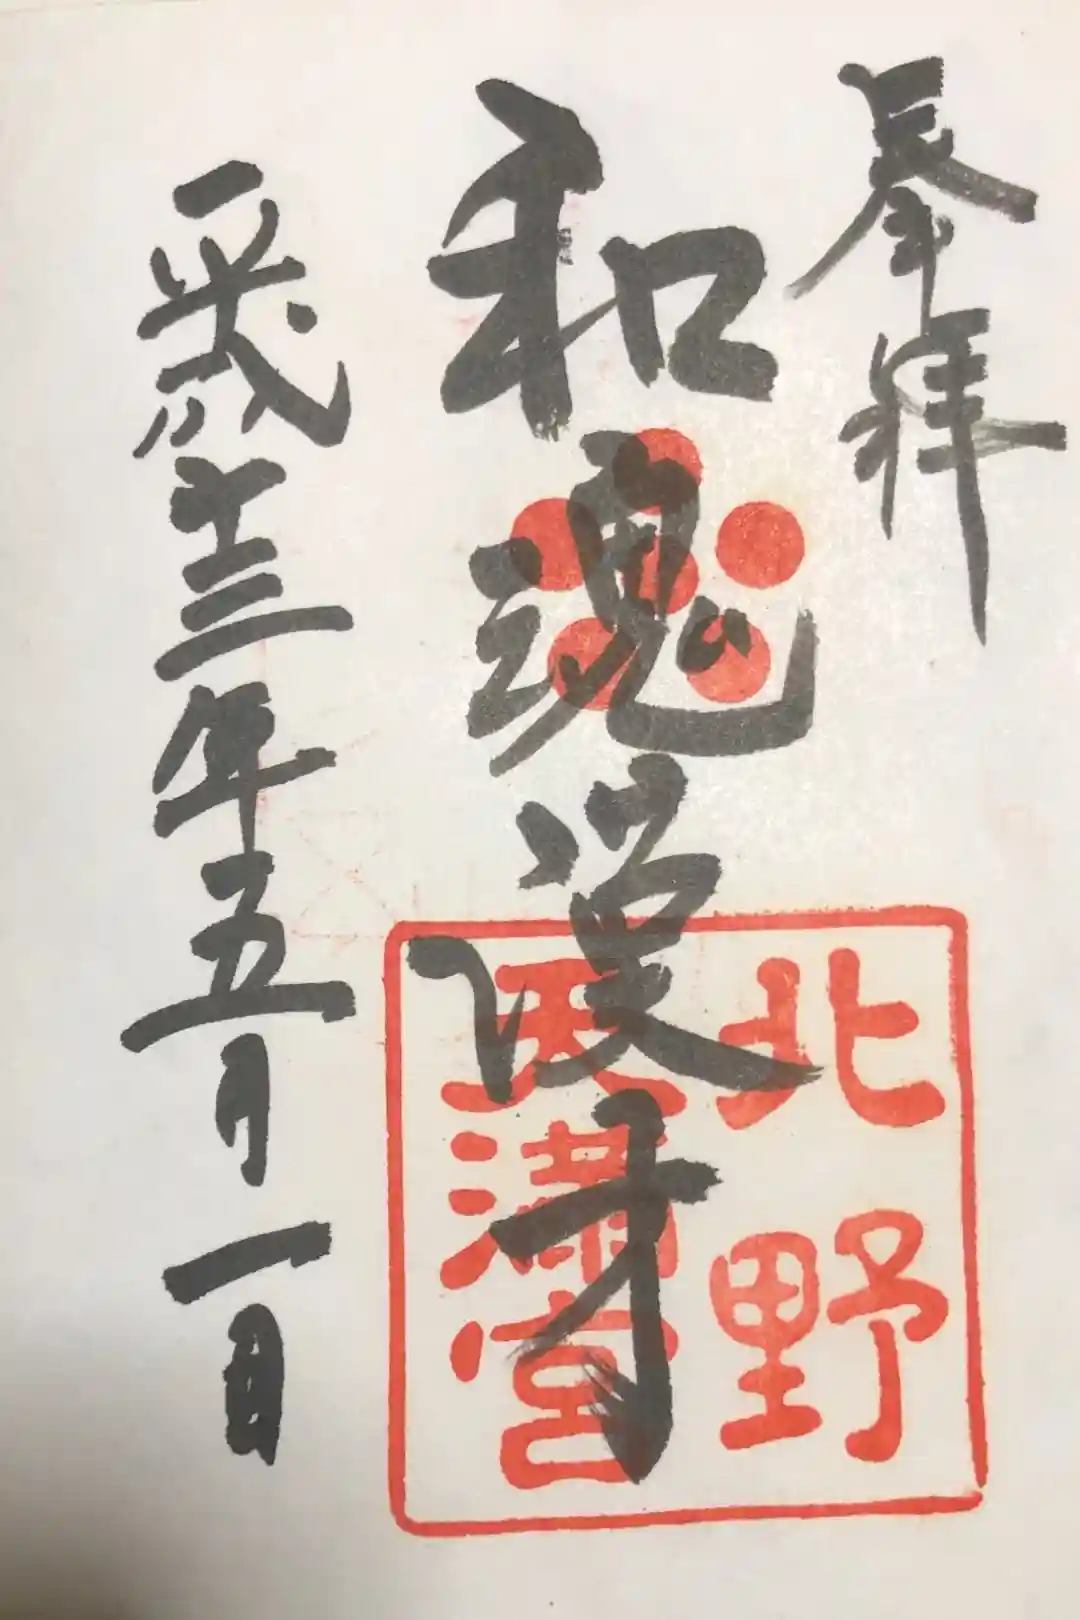 奉拝
和魂漢才
北野
天満宮
平成十三年五月一日